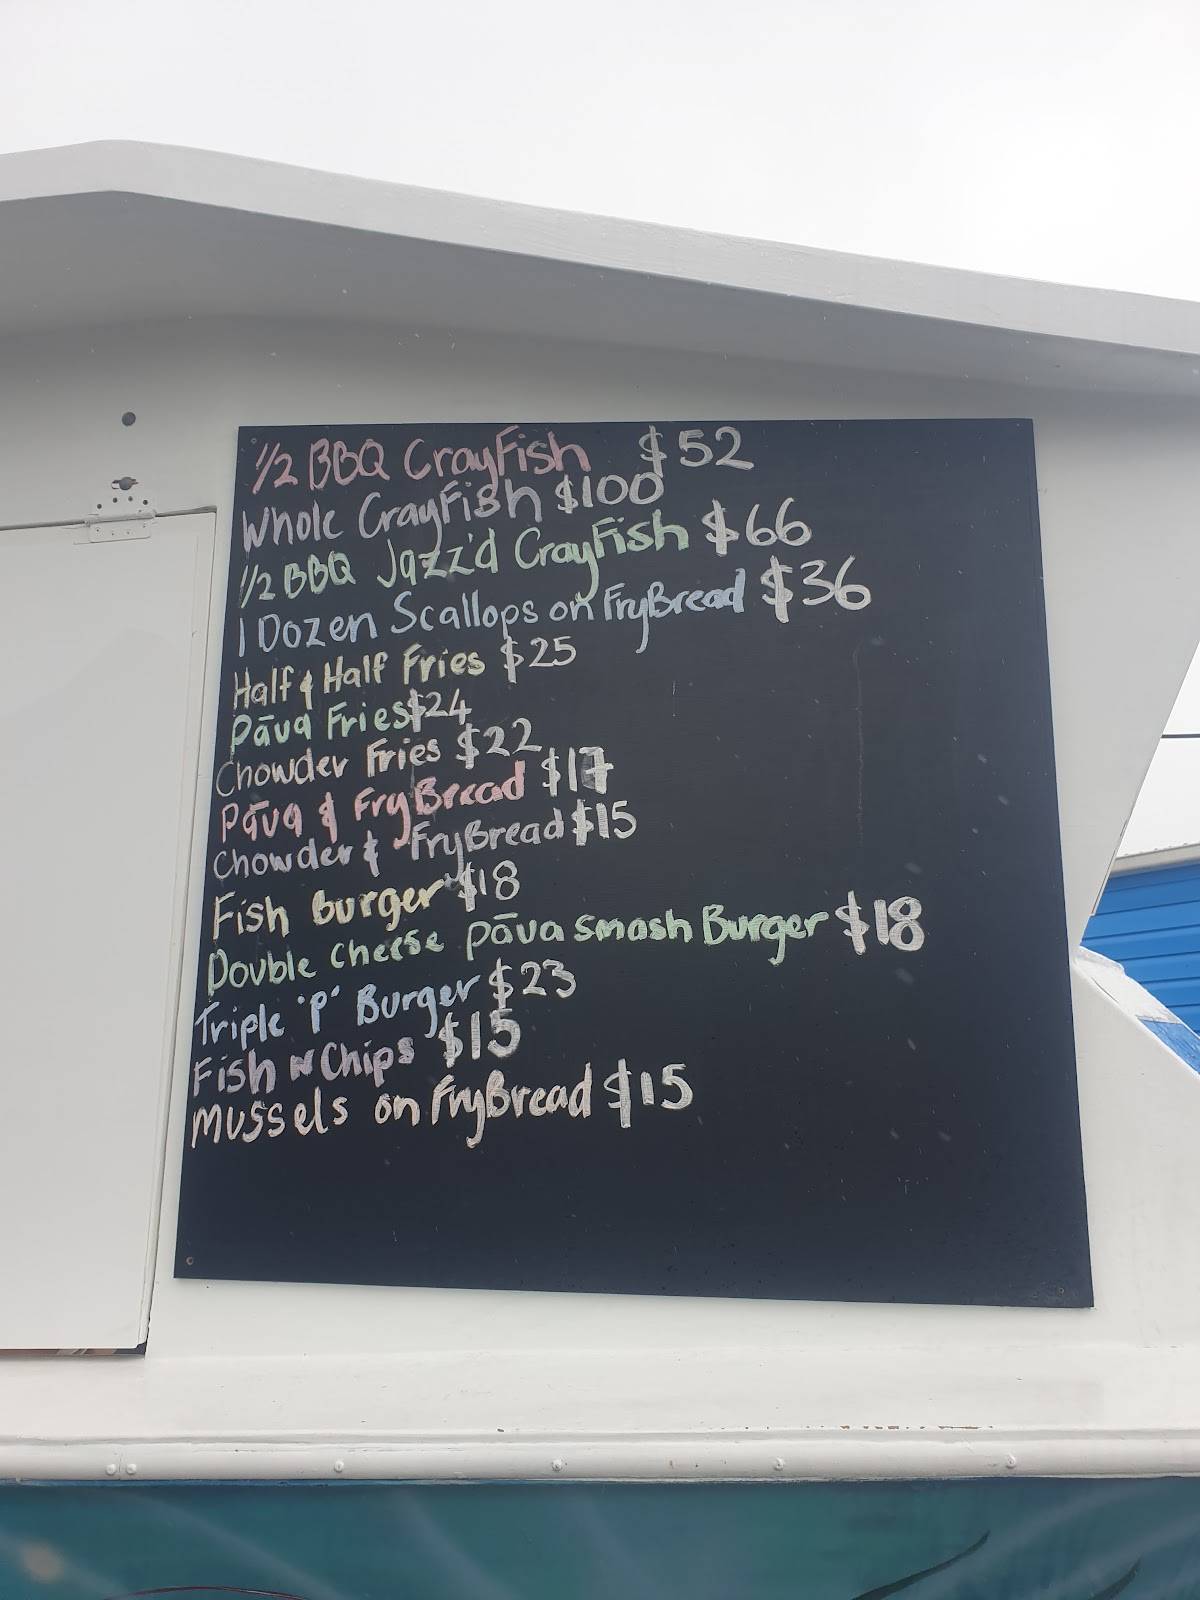 1/2 BBQ CrayFish $52
Whole CrayFish $100
1/2 BBQ Jazz'd CrayFish $66
1 Dozen Scallops on FryBread $36
Half & Half Fries $25
Pāua Fries $24
Chowder Fries $22
Pāua & FryBread $17
Chowder & FryBread $15
Fish Burger $18
Double Cheese pāua Smash Burger $18
Triple 'P' Burger $23
Fish N Chips $15
Mussels on FryBread $15